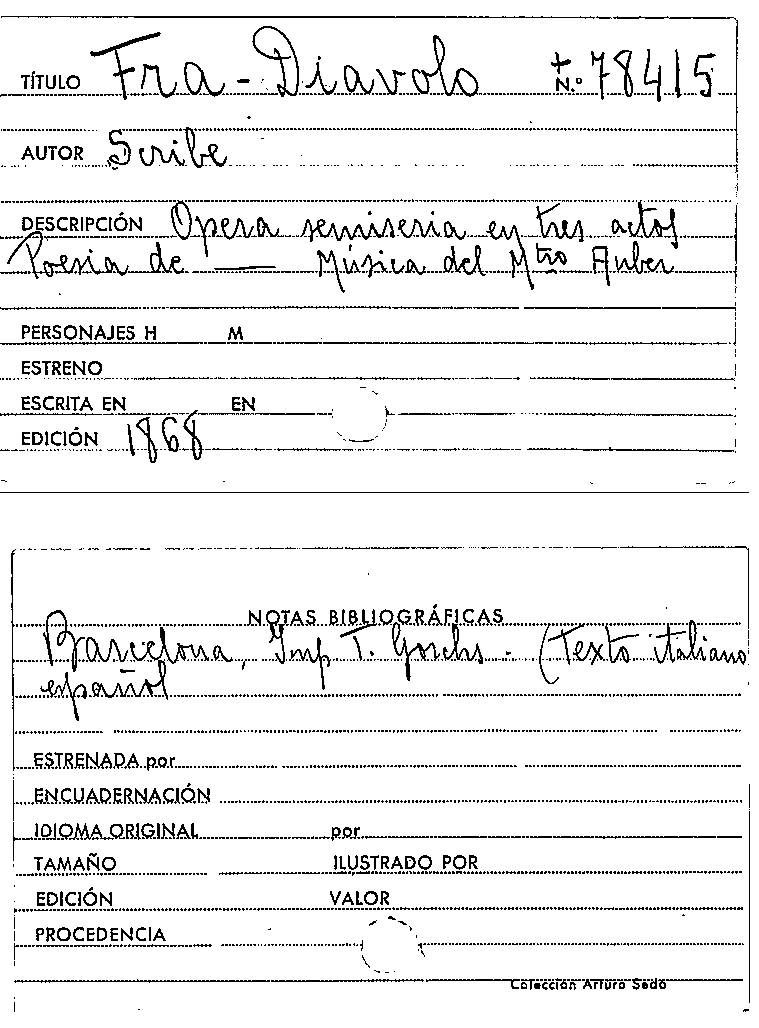 TÍTULO Fra-Diavolo +N.o 78415
AUTOR Scribe
DESCRIPCIÓN Opera semiseria en tres actos
Poesia de —— Música del Mtro Auber
PERSONAJES H M
ESTRENO
ESCRITA EN EN
EDICIÓN 1868
NOTAS BIBLIOGRÁFICAS
Barcelona, Imp T. Gorchs - (Texto italiano
español
ESTRENADA por
ENCUADERNACIÓN
IDIOMA ORIGINAL por
TAMAÑO ILUSTRADO POR
EDICIÓN VALOR
PROCEDENCIA
Colección Arturo Sedó